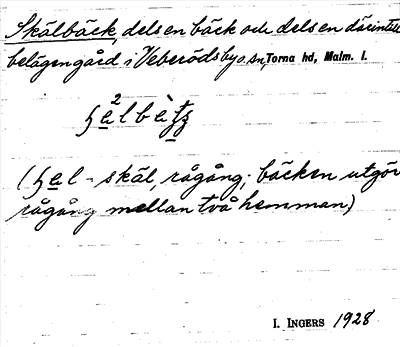 Skälbäck, dels en bäck och dels en därintill
belägen gård i Veberöds by o. sn, Torna hd, Malm. l.
(ʃel - skäl, rågång; bäcken utgör
rågång mellan två hemman)
I. INGERS 1928